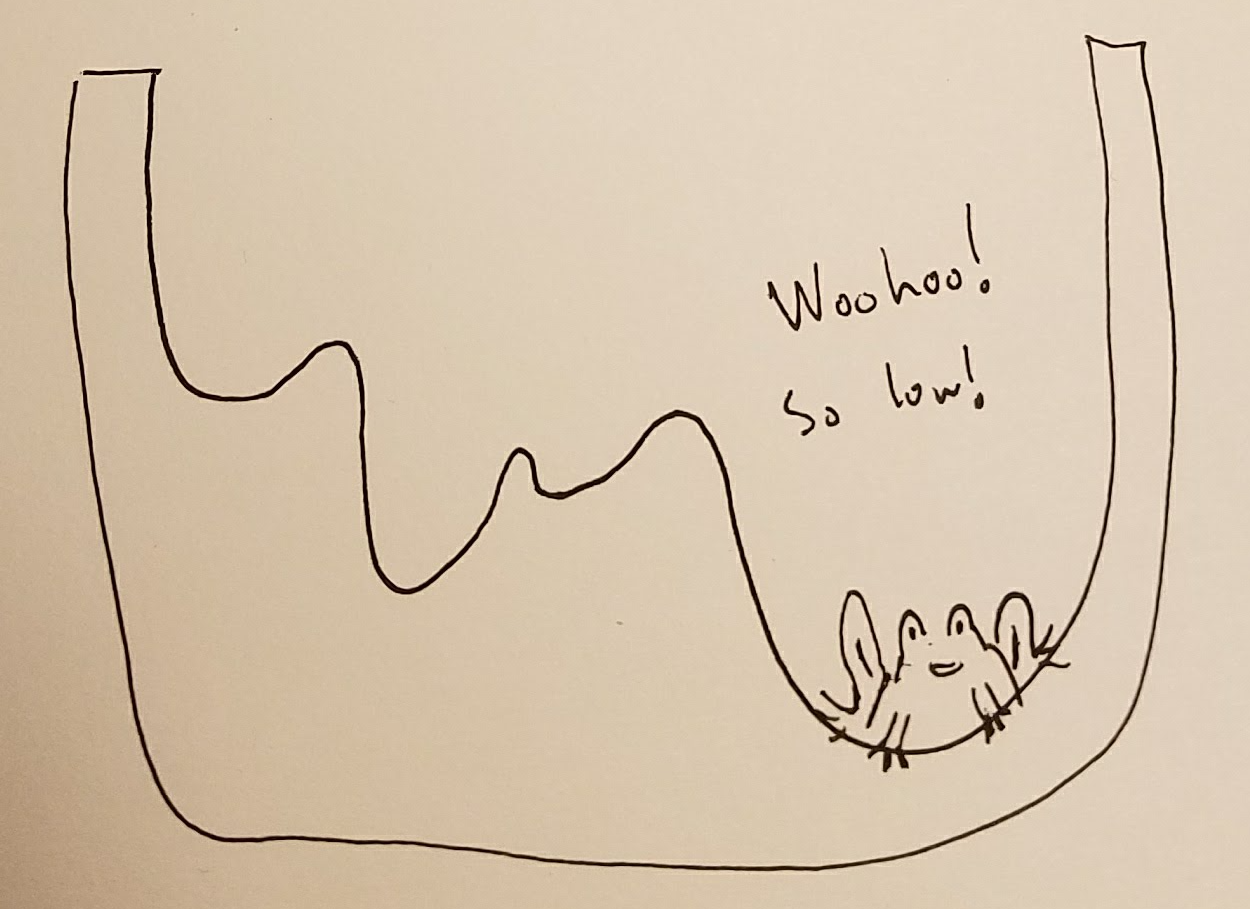 Woohoo!
So low!